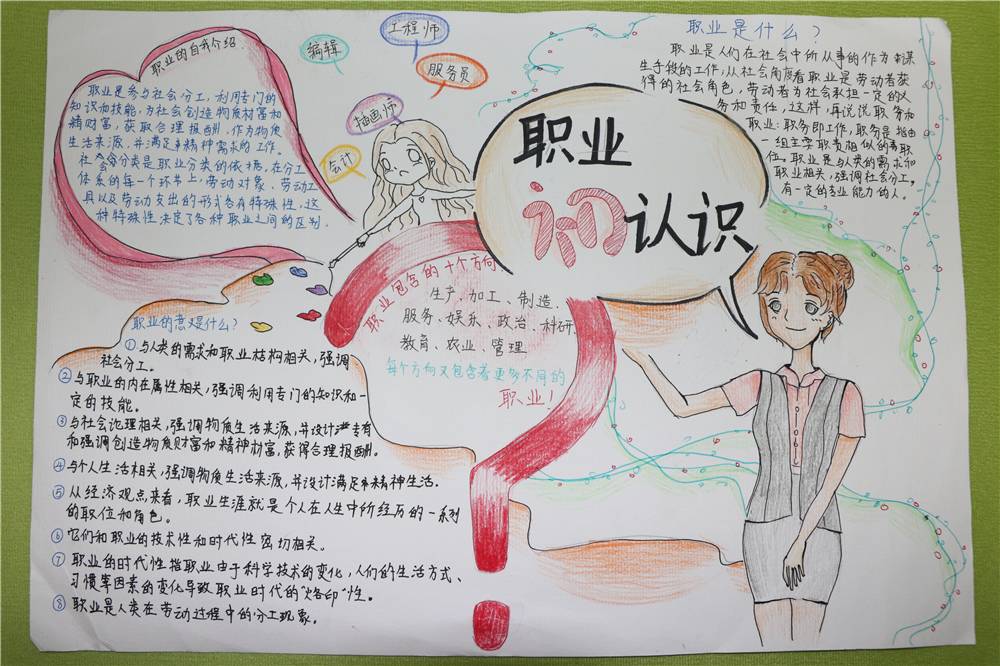 职业初认识
职业的自我介绍
职业是参与社会分工，利用专门的
知识和技能，为社会创造物质财富和
精神财富，获取合理报酬，作为物质
生活来源，并满足精神需求的工作。
社会分类是职业分类的依据，在分工
体系的每一个环节上，劳动对象、劳动工
具以及劳动支出的形式各有特殊性，这
种特殊性决定了各种职业之间的区别.
编辑
工程师
服务员
插画师
会计
职业是什么？
职业是人们在社会中所从事的作为谋
生手段的工作，从社会角度看职业是劳动者获
得的社会角色，劳动者为社会承担一定的义
务和责任，这样，再说说职务和
职业：职务即工作，职务是指由
一组主要职责相似的
职位。职业是与人类的需求和
职业相关，强调社会分工，
有一定的专业能力的人。
职业包含的十个方向
生产、加工、制造、
服务、娱乐、政治、科研、
教育、农业、管理
每个方向又包含着更多不同的
职业！
职业的意义是什么？
①与人类的需求和职业结构相关，强调
社会分工。
②与职业的内在属性相关，强调利用专门的知识和一
定的技能。
③与社会论理相关，强调物质生活来源，并设计专有
和强调创造物质财富和精神财富，获得合理报酬。
④与个人生活相关，强调物质生活来源，并设计满足精神生活.
⑤从经济观点来看，职业生涯就是个人在人生中所经历的一系列
的职位和角色。
⑥它们和职业的技术性和时代性密切相关。
⑦职业的时代性指职业由于科学技术的变化，人们的生活方式、
习惯等因素的变化导致职业时代的“烙印”性。
⑧职业是人类在劳动过程中的分工现象。